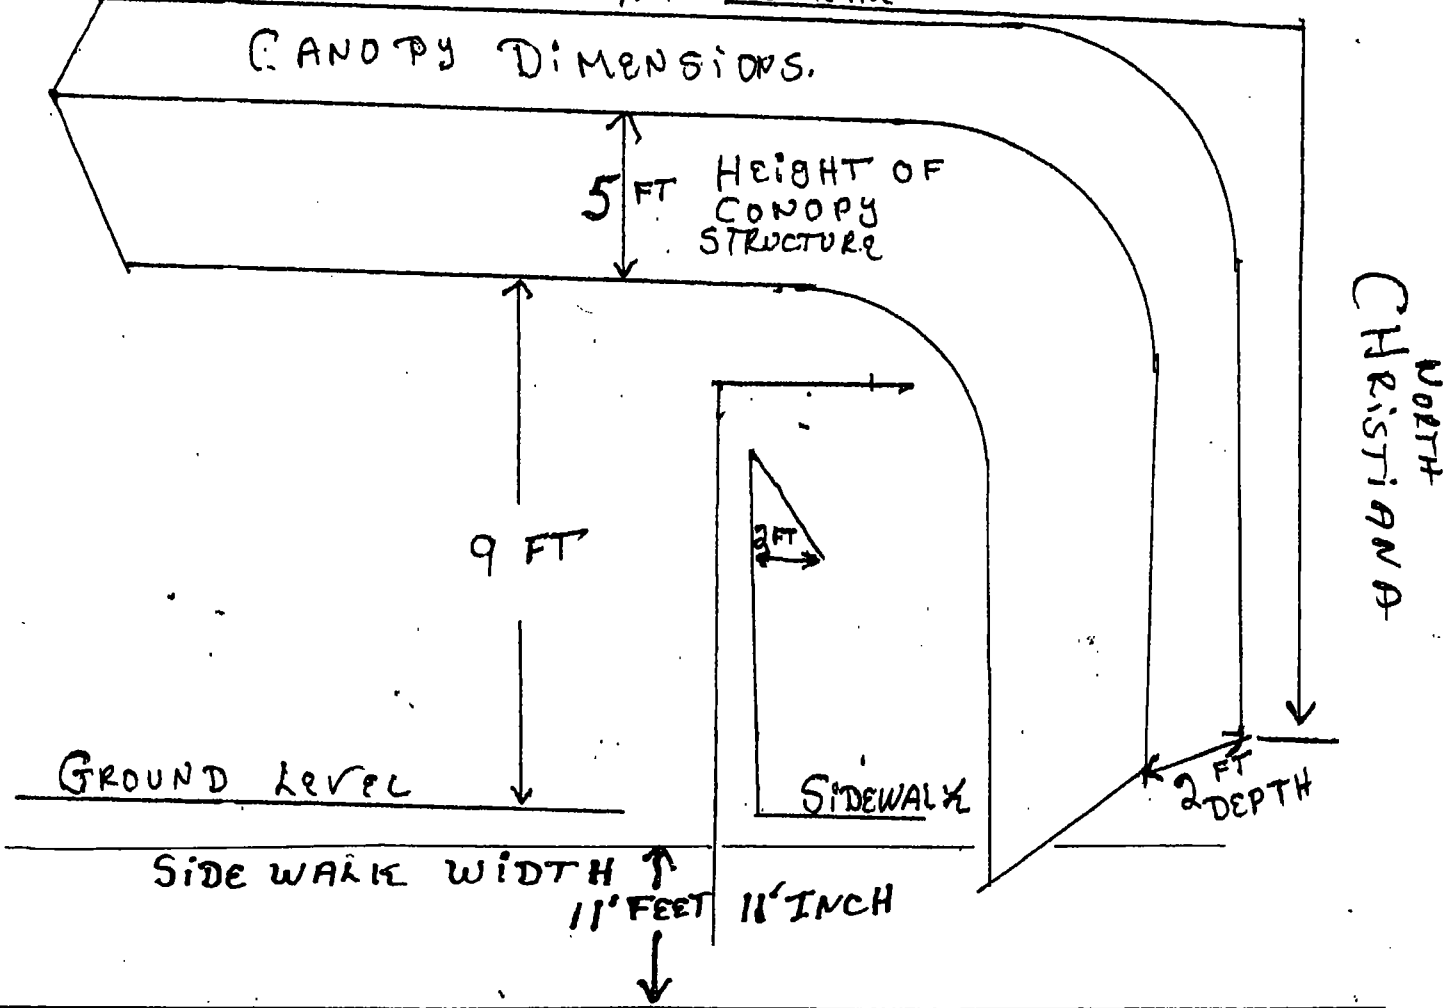 CANOPY DiMENSiONS.
5 FT
HEiGHT OF
CONOPY
STRUCTURE
NORTH
CHRiSTiANA
9 FT
2 FT
GROUND LEVEL
SiDEWALK
2 FT
DEPTH
SiDE WALK WiDTH
11' FEET 11' INCH